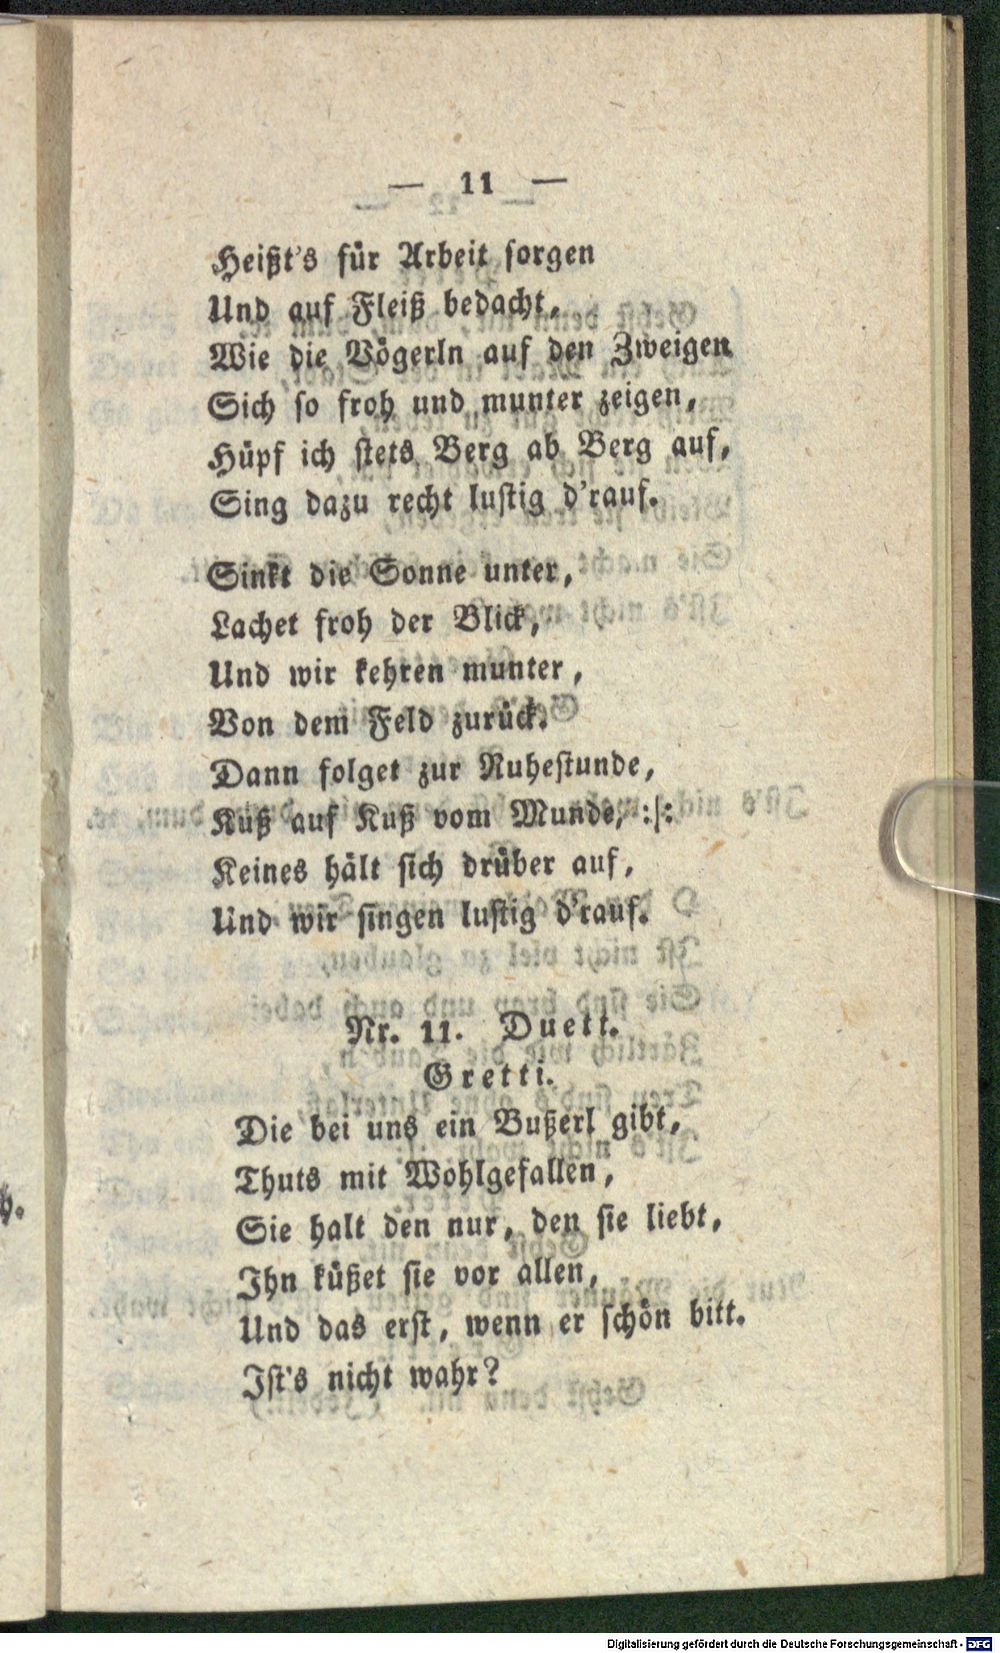 — 11 —
Heißt's für Arbeit sorgen
Und auf Fleiß bedacht,
Wie die Vögerln auf den Zweigen
Sich so froh und munter zeigen,
Hüpf ich stets Berg ab Berg auf,
Sing dazu recht lustig d'rauf.
Sinkt die Sonne unter,
Lachet froh der Blick,
Und wir kehren munter,
Von dem Feld zurück.
Dann folget zur Ruhestunde,
Kuß auf Kuß vom Munde, :|:
Keines hält sich drüber auf,
Und wir singen lustig d'rauf.
Nr. 11. Duett.
Gretti.
Die bei uns ein Bußerl gibt,
Thuts mit Wohlgefallen,
Sie halt den nur, den sie liebt,
Ihn küßet sie vor allen,
Und das erst, wenn er schön bitt.
Ist's nicht wahr?
Digitalisierung gefördert durch die Deutsche Forschungsgemeinschaft - DFG